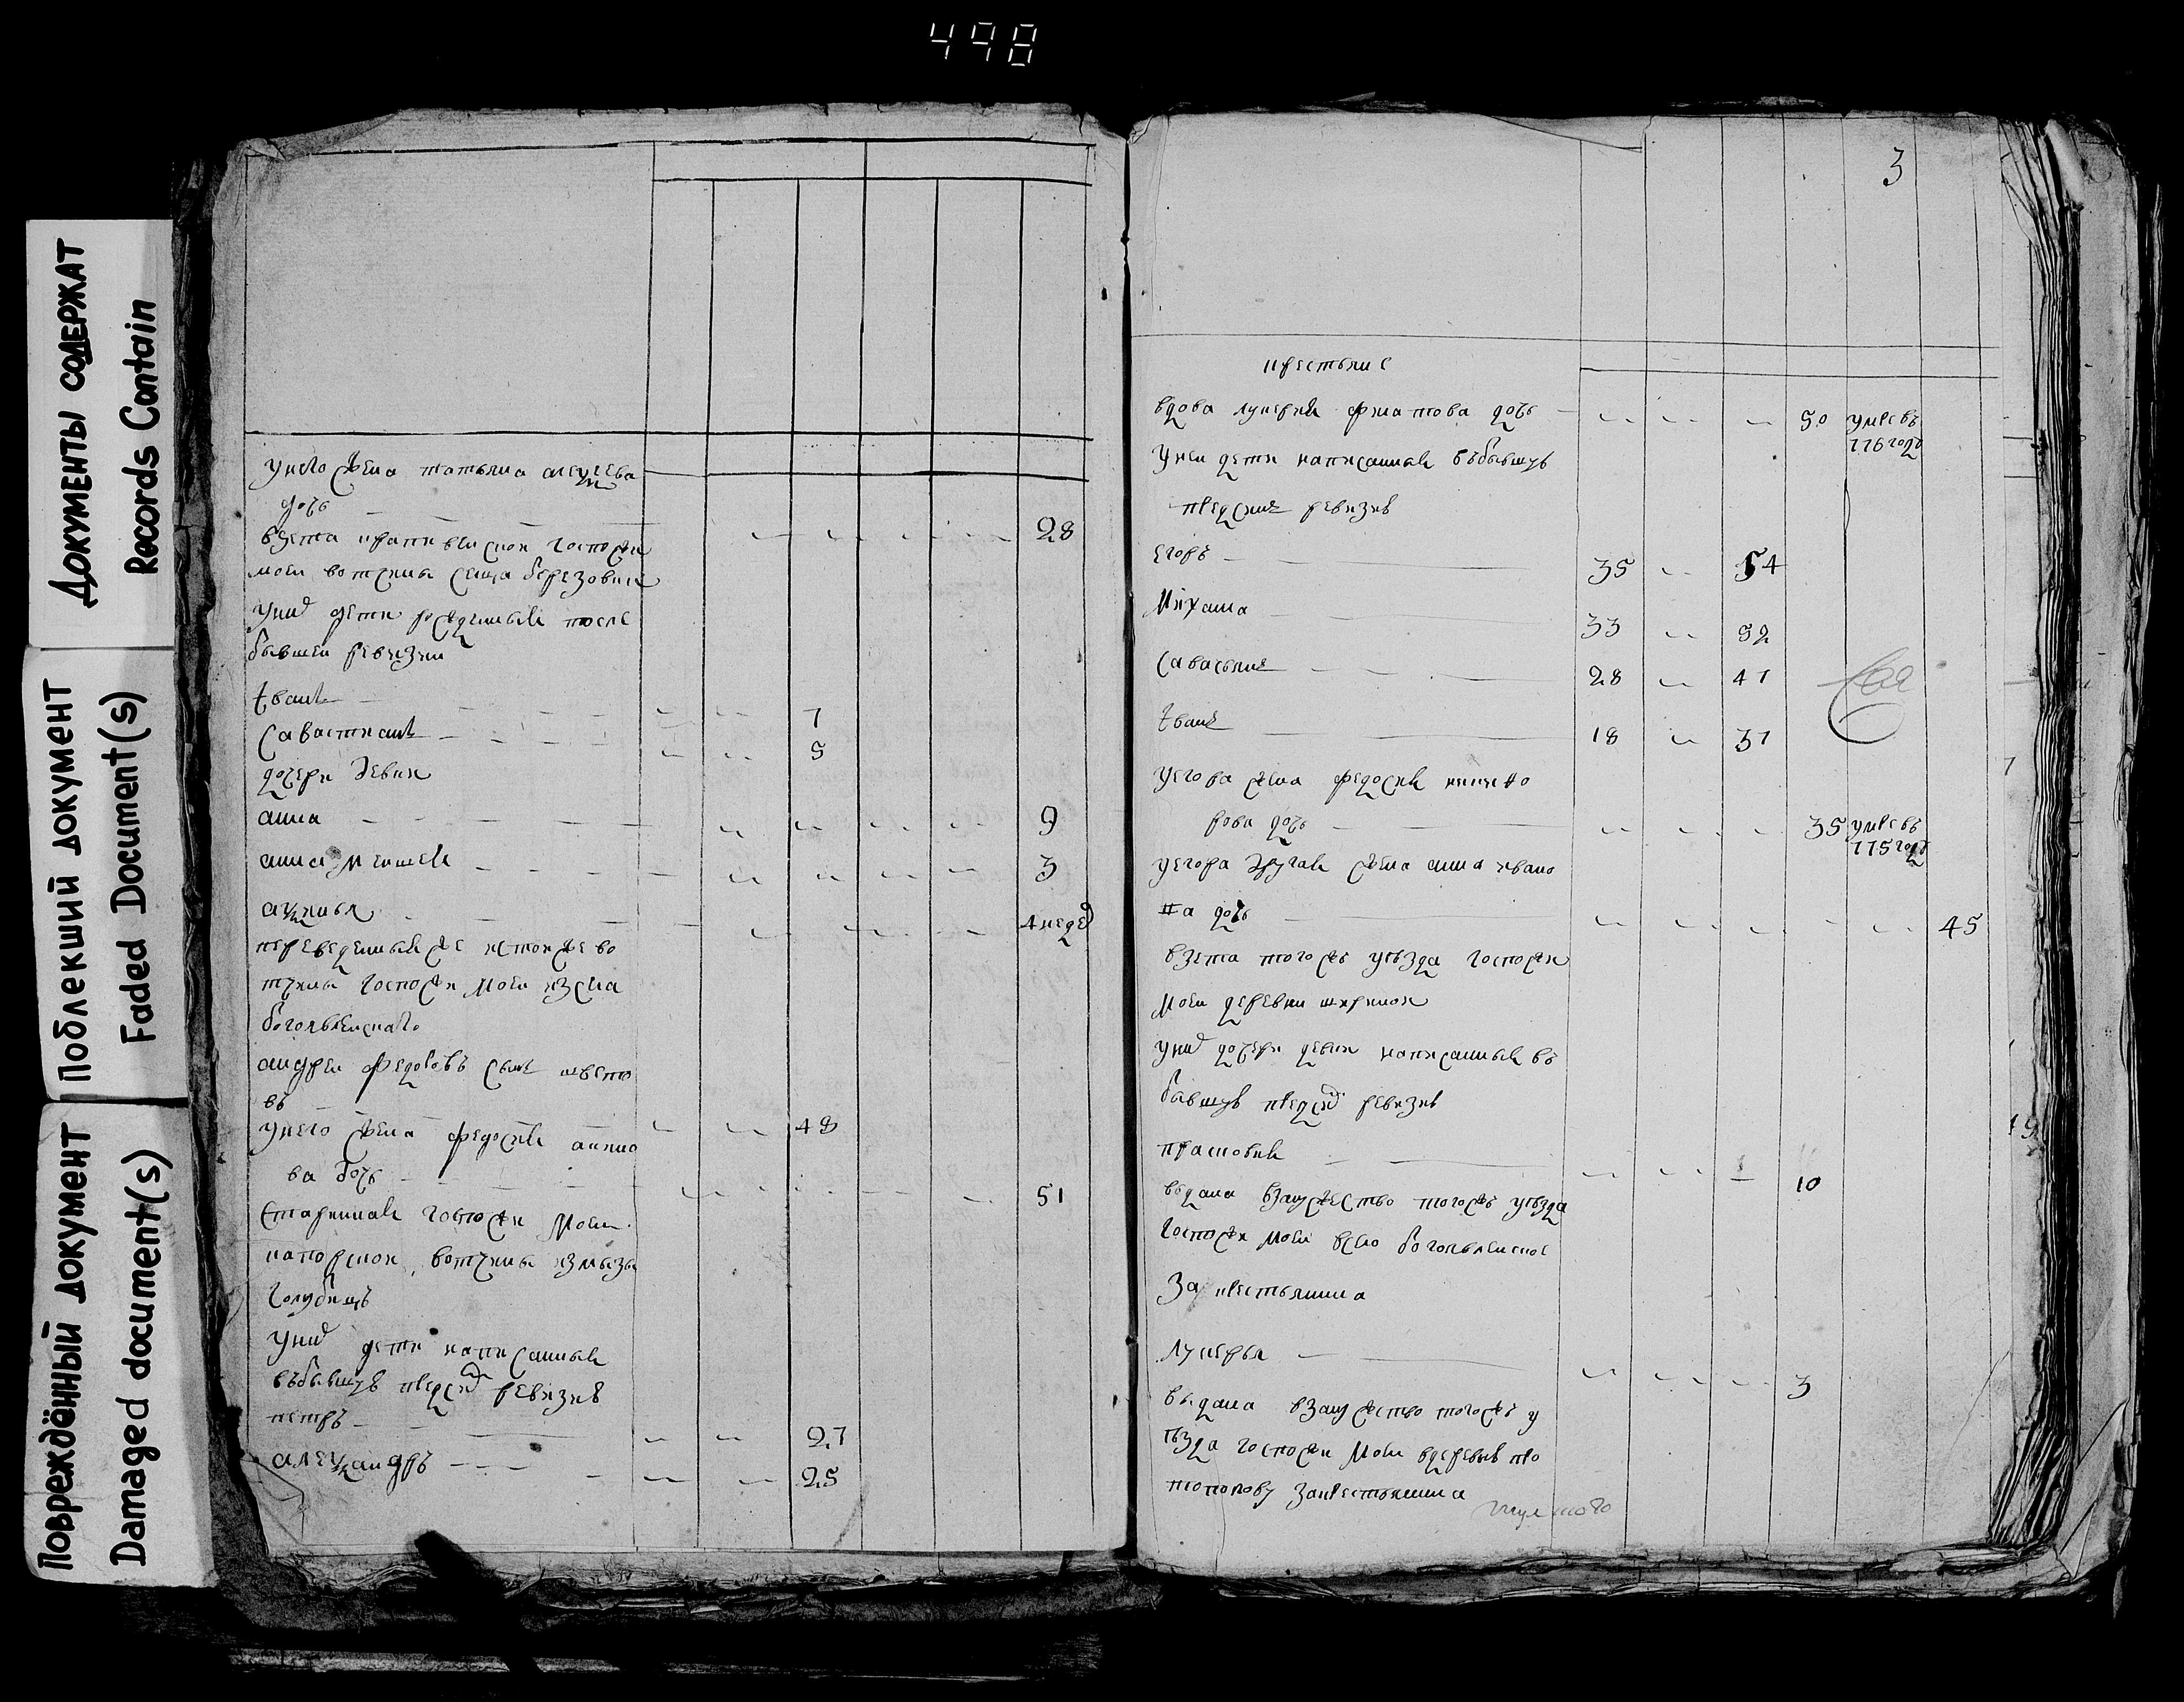 498
Документы содержат
Records Contain
Поблекший документ
Faded Document(s)
Повреждённый документ
Damaged document(s)
у него жена татьяна алеѯеева
дочь 28
взета
вотчины селца березовки
у них дети рожденныя после
бывшей ревизии
Iванъ 7
Савастиянъ 5
дочери девки
анна 9
анна меншая 3
аѯинья 4 недел
переведенныя же ис той же во
тчины госпожи моей из села
богоявленскаго
андрей федоровъ сынъ
въ 48
у него жена федосья
ва дочь 51
старинная госпожи моей
вотчины из мызы
у них дети написанныя
в бывшую пред сим ревизию
петръ 27
алеѯандръ 25
3
крестьяне
вдова лукерья филатова дочь 50 умре въ
776 году
у ней дети написанныя в бывшую
пред симъ ревизию
егоръ 35 54
михаила 33 52
Савастьянъ 28 47
Iванъ 18 37
у егора жена федосья никифо
рова дочь 35 умре въ
775 году
у егора другая жена анна ивано
ва дочь 45
взета того жъ уезда госпожи
моей деревни
у них дочери девки написанныя въ
бывшую пред сим ревизию
прасковья 10
выдана в замужество того жъ уезда
госпожи моей в село богоявленское
за крестьянина
лукерья 3
выдана в замужество того жъ у
езда госпожи моей в деревню про
топопову за крестьянина